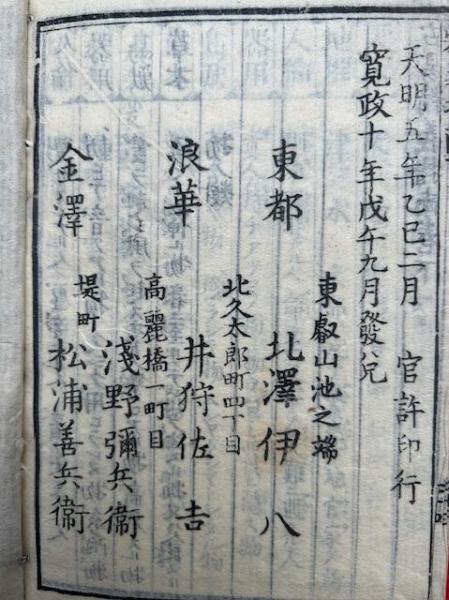 天明五年乙巳二月 官許印行
寛政十年戊午九月發兌
東都 東叡山池之端 北澤伊八
浪華 北久太郎町四丁目 井狩佐吉
高麗橋一町目 淺野彌兵衞
金澤 堤町 松浦善兵衞